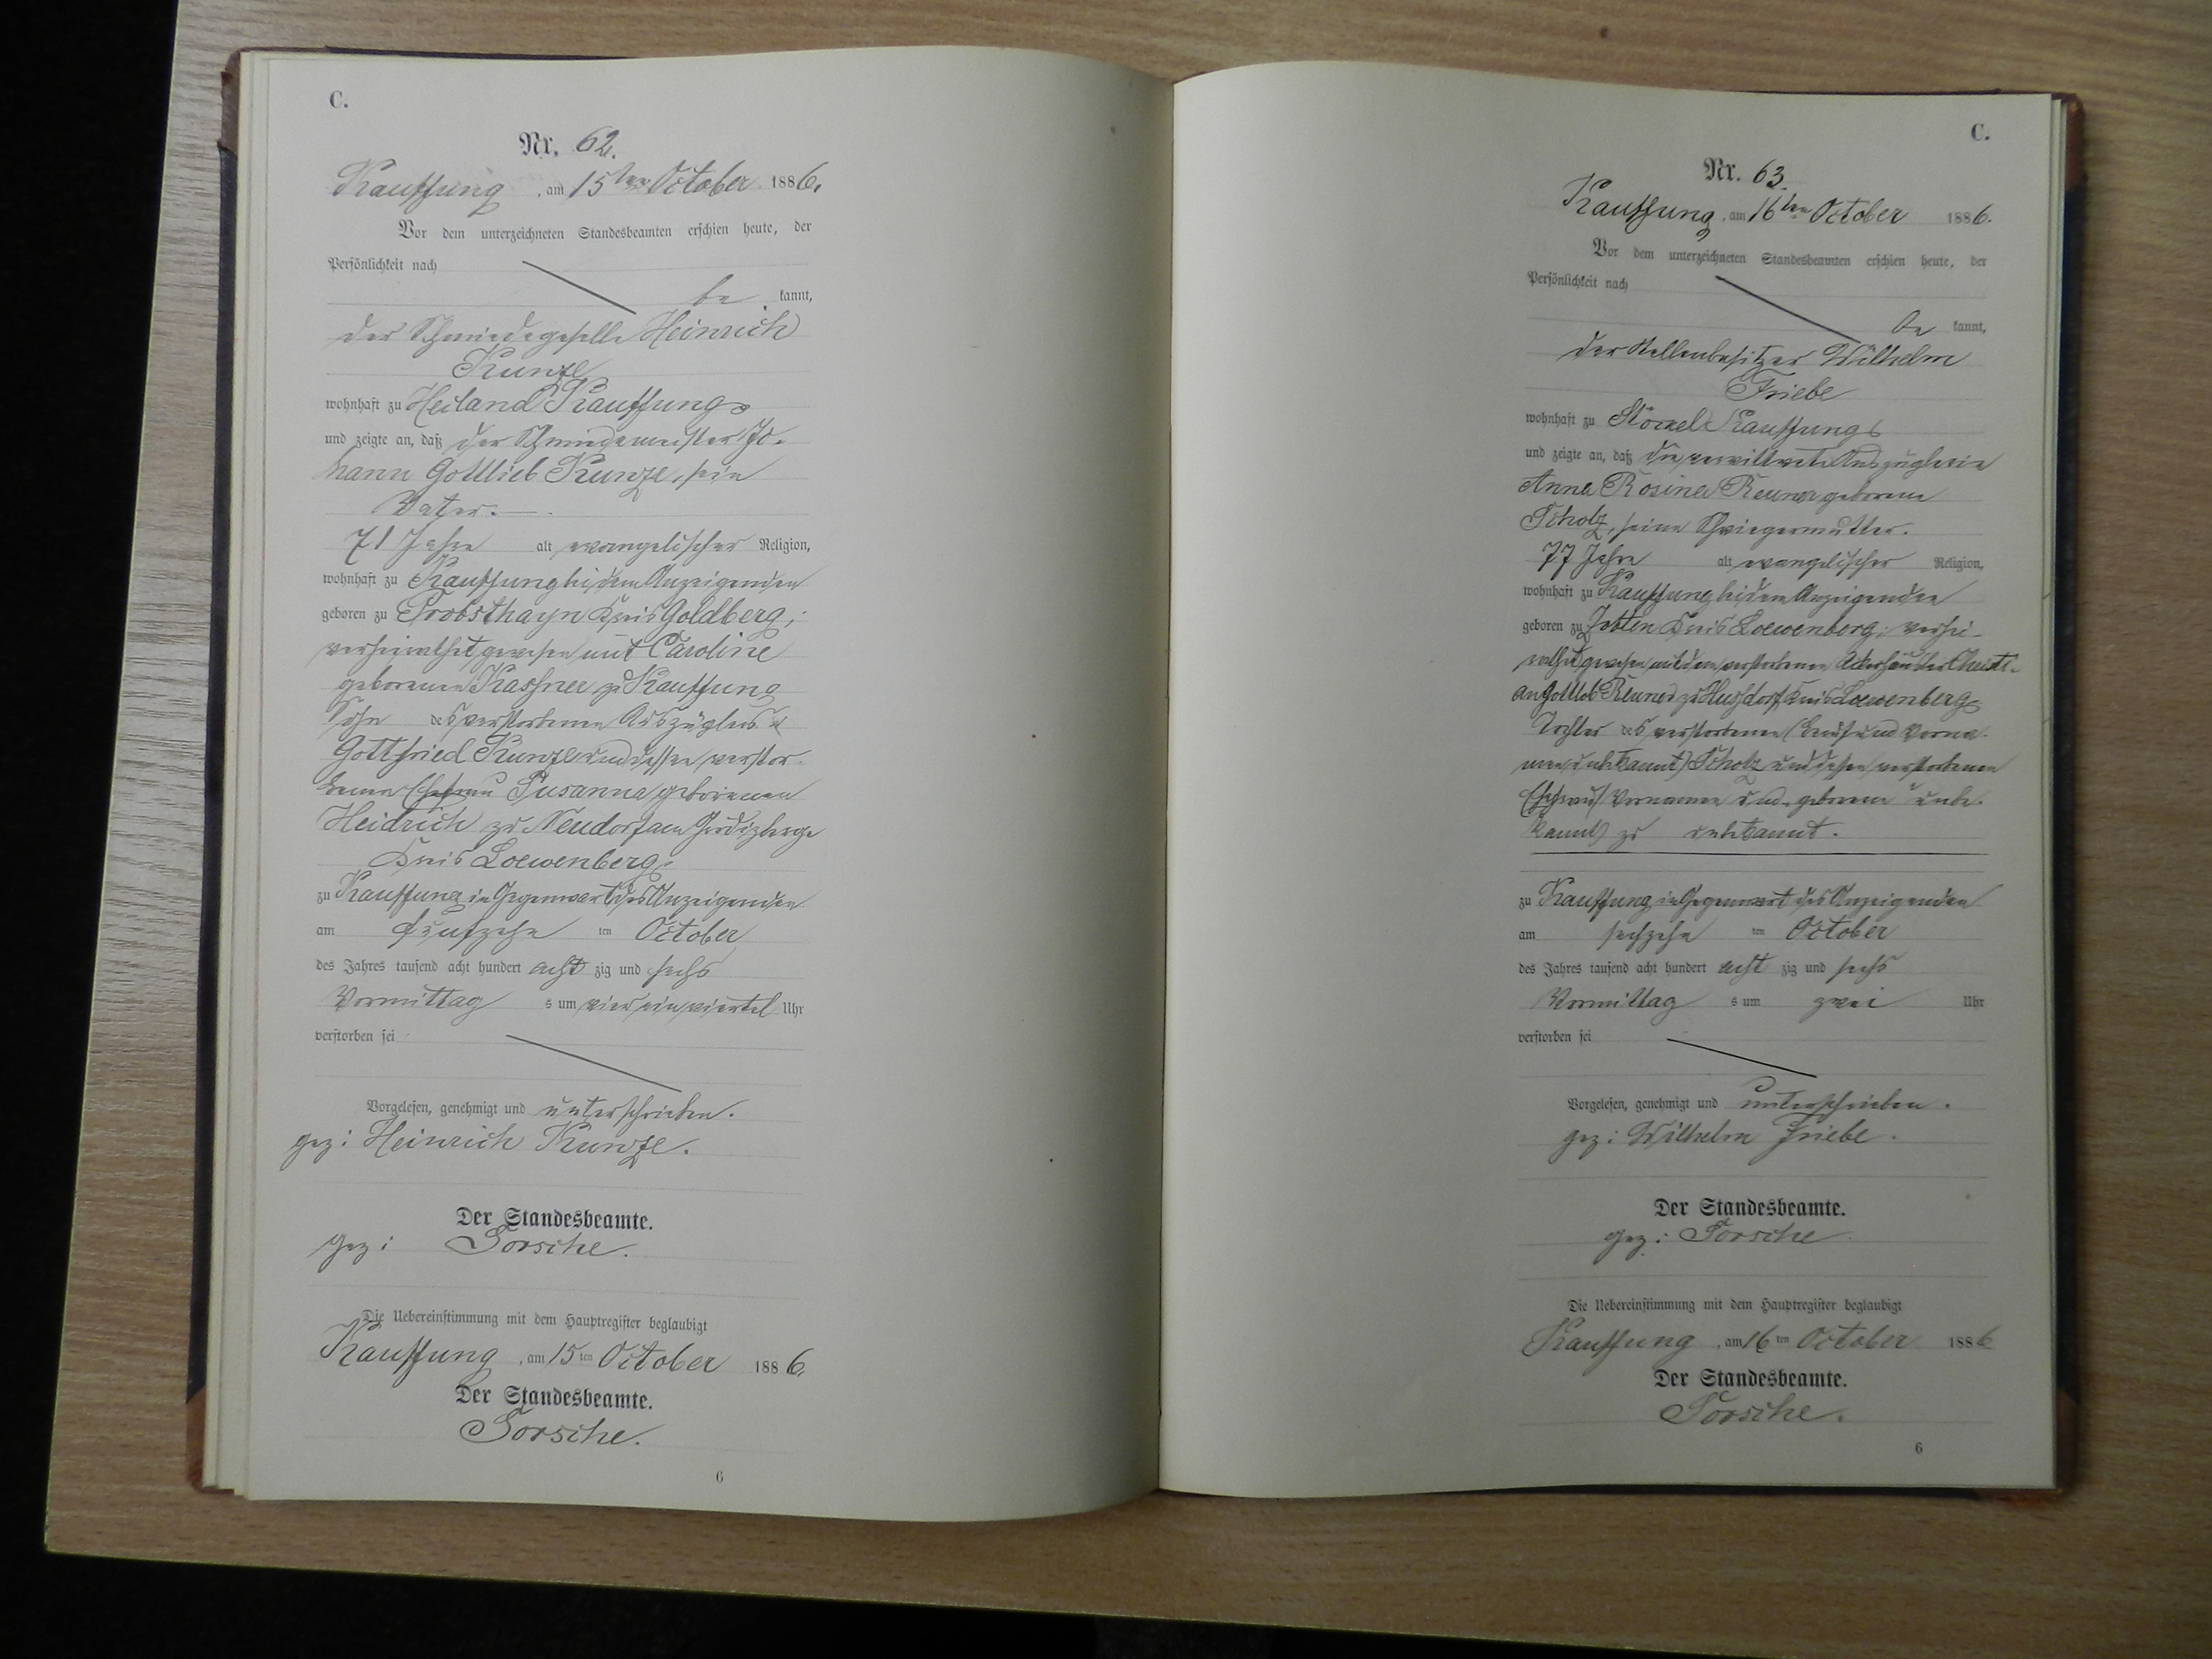 C.
Nr. 62.
Kauffung, am 15ten October 1886.
Vor dem unterzeichneten Standesbeamten erschien heute, der
Persönlichkeit nach
be kannt,
der Schmiedegeselle Heinrich
Kunze
wohnhaft zu Heiland Kauffung
und zeigte an, daß der Schmiedemeister Jo-
hann Gottlieb Kunze, sein
Vater.
71 Jahre alt evangelischer Religion,
wohnhaft zu Kauffung bei dem Anzeigenden
geboren zu Probsthayn Kreis Goldberg;
verheirathet gewesen mit Caroline
geborenen Kassner zu Kauffung
Sohn des verstorbenen Auszüglers
Gottfried Kunze und dessen verstor-
benen Ehefrau Susanna geborenen
Heidrich zu Neudorf am Gröditzberge
Kreis Loewenberg.
zu Kauffung in Gegenwart des Anzeigenden
am fünfzehn ten October
des Jahres tausend acht hundert acht zig und sechs
Vormittag s um vier ein viertel Uhr
verstorben sei
Vorgelesen, genehmigt und unterschrieben.
gez: Heinrich Kunze.
Der Standesbeamte.
gez:
Die Uebereinstimmung mit dem Hauptregister beglaubigt
Kauffung, am 15ten October 1886.
Der Standesbeamte.
6
C.
Nr. 63.
Kauffung, am 16ten October 1886.
Vor dem unterzeichneten Standesbeamten erschien heute, der
Persönlichkeit nach
be kannt,
der Stellenbesitzer Wilhelm
Friebe
wohnhaft zu Stöckel Kauffung
und zeigte an, daß die verwittwete Auszüglerin
Anna Rosina Reuner geborene
Scholz, seine Schwiegermutter.
77 Jahre alt evangelischer Religion,
wohnhaft zu Kauffung bei dem Anzeigenden
geboren zu Zobten Kreis Loewenberg; verhei-
rathet gewesen mit dem verstorbenen Christi-
an Gottlob Reuner zu Hussdorf Kreis Loewenberg
Tochter des verstorbenen (Beruf und Vorna-
men unbekannt) Scholz und dessen verstorbenen
Ehefrau (Vornamen und geborene unbe-
kannt) zu unbekannt.
zu Kauffung in Gegenwart des Anzeigenden
am sechzehn ten October
des Jahres tausend acht hundert acht zig und sechs
Vormittag s um zwei Uhr
verstorben sei
Vorgelesen, genehmigt und unterschrieben.
gez: Wilhelm Friebe.
Der Standesbeamte.
gez:
Die Uebereinstimmung mit dem Hauptregister beglaubigt
Kauffung, am 16ten October 1886
Der Standesbeamte.
6